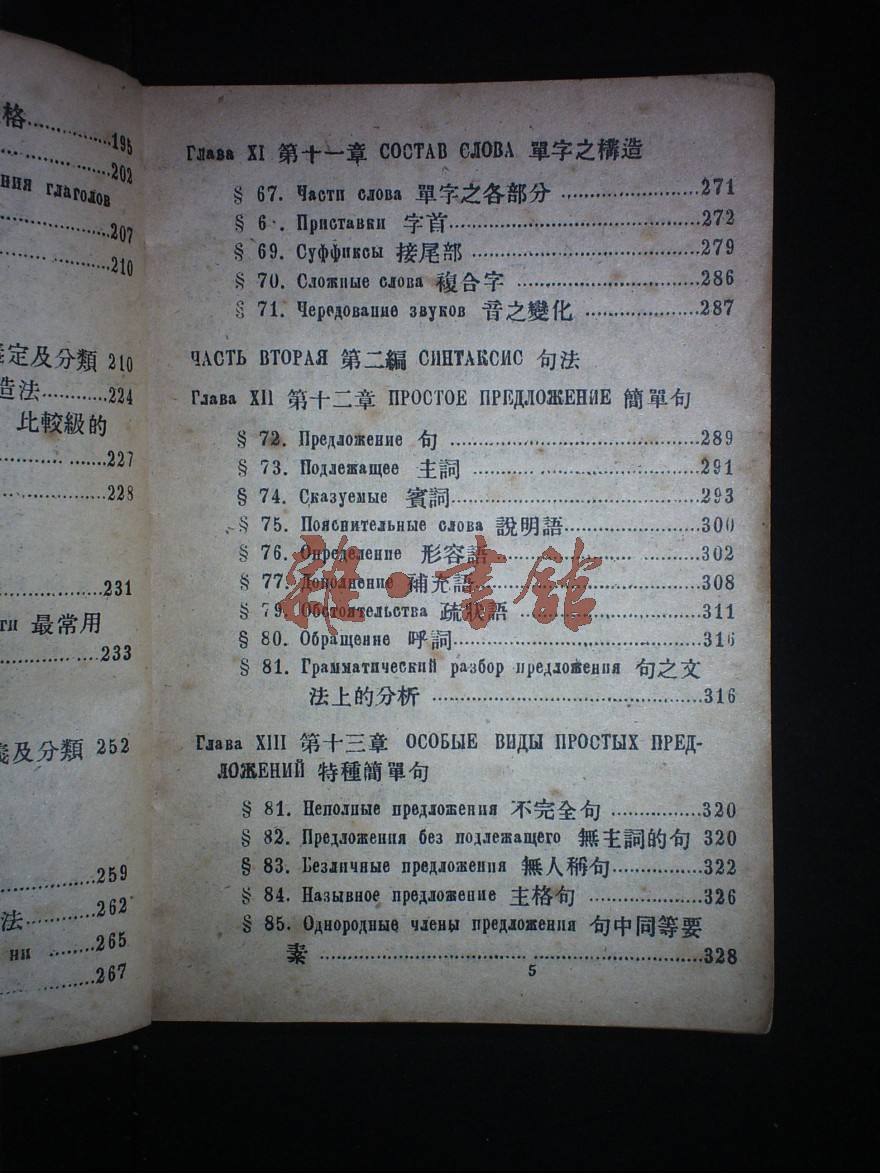 格 195
202
ния глаголов
207
210
定及分類 210
造法 224
比較級的
227
228
231
ти 最常用
233
及分類 252
259
法 262
ни 265
267
Глава XI 第十一章 СОСТАВ СЛОВА 單字之構造
§ 67. Части слова 單字之各部分 271
§ 6 . Приставки 字首 272
§ 69. Суффиксы 接尾部 279
§ 70. Сложные слова 複合字 286
§ 71. Чередование звуков 音之變化 287
ЧАСТЬ ВТОРАЯ 第二編 СИНТАКСИС 句法
Глава XII 第十二章 ПРОСТОЕ ПРЕДЛОЖЕНИЕ 簡單句
§ 72. Предложение 句 289
§ 73. Подлежащее 主詞 291
§ 74. Сказуемые 賓詞 293
§ 75. Пояснительные слова 說明語 300
§ 76. Определение 形容語 302
§ 77. Дополнение 補充語 308
§ 79. Обстоятельства 疏狀語 311
§ 80. Обращение 呼詞 316
§ 81. Грамматический разбор предложения 句之文
法上的分析 316
Глава XIII 第十三章 ОСОБЫЕ ВИДЫ ПРОСТЫХ ПРЕД-
ЛОЖЕНИЙ 特種簡單句
§ 81. Неполные предложения 不完全句 320
§ 82. Предложения без подлежащего 無主詞的句 320
§ 83. Безличные предложения 無人稱句 322
§ 84. Назывное предложение 主格句 326
§ 85. Однородные члены предложения 句中同等要
素 328
5
雜·書館